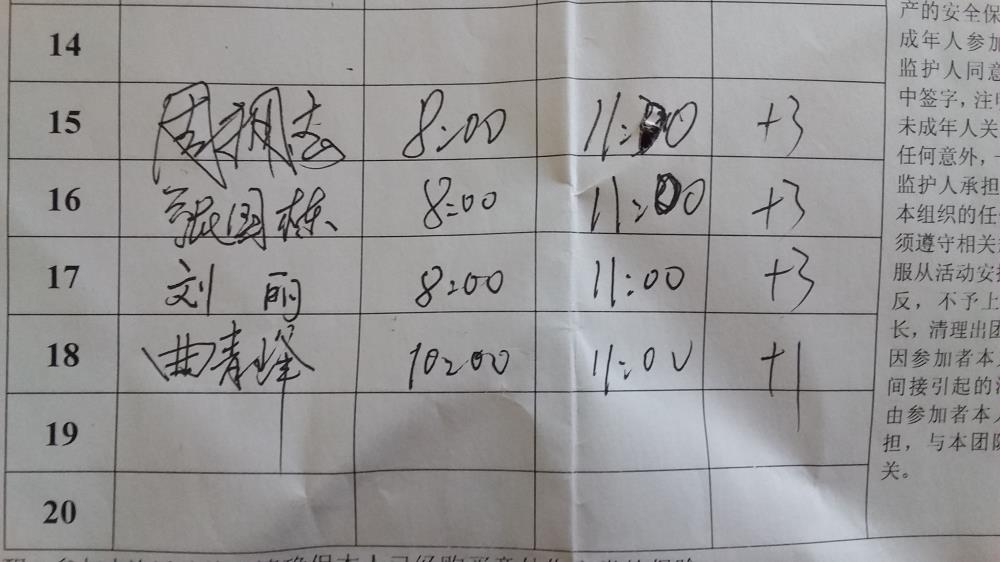 14
15 周 8:00 11:00 +3
16 国栋 8:00 11:00 +3
17 刘丽 8:00 11:00 +3
18 曲青峰 10:00 11:00 +1
19
20
产的安全保
成年人参加
监护人同意
中签字，注
未成年人关
任何意外，
监护人承担
本组织的任
须遵守相关
服从活动安排
反，不予上
长，清理出团
因参加者本
间接引起的
由参加者本人
担，与本团队
关。